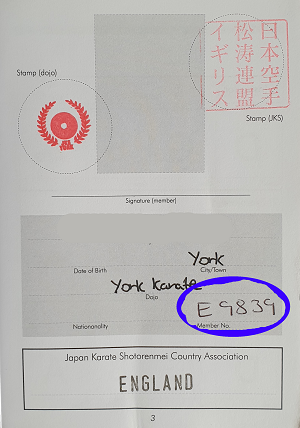 Stamp (dojo)
日本空手
松涛連盟
イギリス
Stamp (JKS)
Signature (member)
York
Date of Birth
City/Town
York Karate
Dojo
E 9839
Nationanality
Member No.
Japan Karate Shotarenmei Country Association
ENGLAND
3